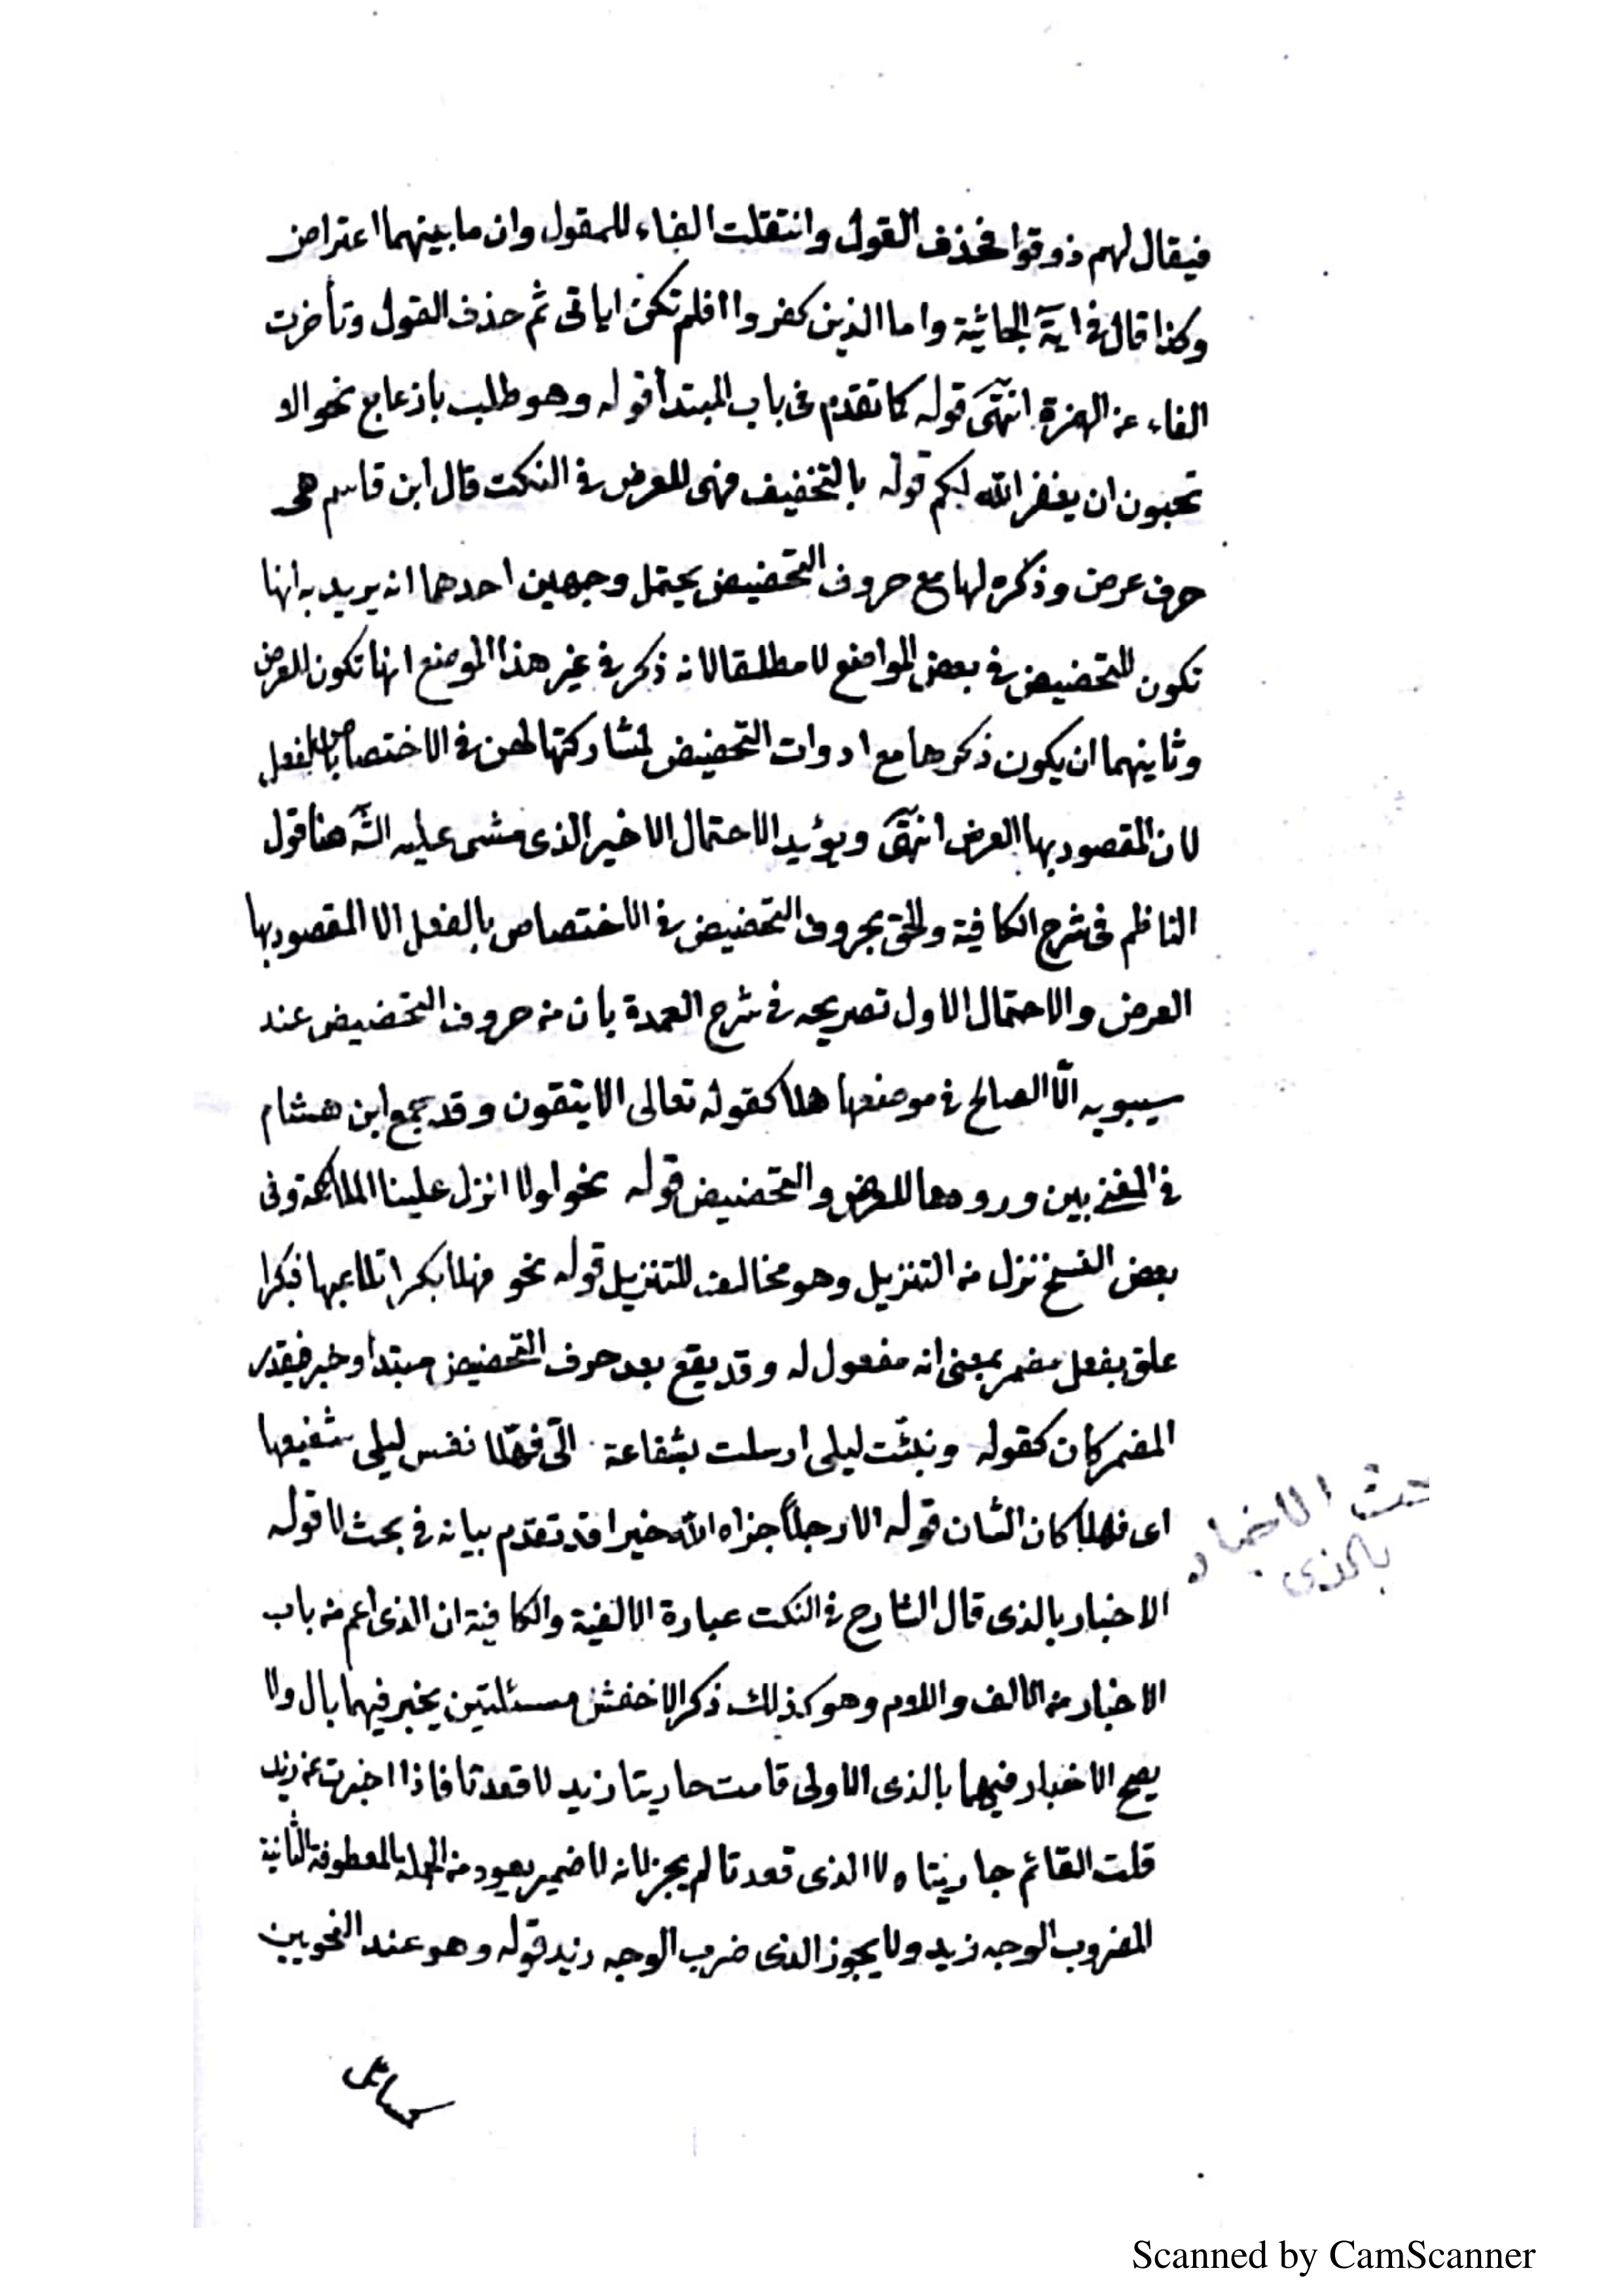 فيقال لهم ذوقوا فحذف القول وانتقلت الفاء للمقول وان ما بينهما اعتراض
وكذا قال فى اية الجاثية واما الذين كفروا افلم تكن اياتى ثم حذف القول وتأخرت
الفاء عن الهمزة انتهى قوله كما تقدم فى باب المبتدأ قوله وهو طلب بازعاج نحو الا
تحبون ان يغفر الله لكم قوله بالتخفيف فهى للعرض فى النكت قال ابن قاسم هى
حرف عرض وذكره لها مع حروف التحضيض يحتمل وجهين احدهما انه يريد به انها
تكون للتحضيض فى بعض المواضع لا مطلقا لانه ذكر فى غير هذا الموضع انها تكون للعرض
وثانيهما ان يكون ذكرها مع ادوات التحضيض لمشاركتها لهن فى الاختصاص بالفعل
لان المقصود بها العرض انتهى ويؤيد الاحتمال الاخير الذى مشى عليه الش هنا قول
الناظم فى شرح الكافية والحق بحروف التحضيض فى الاختصاص بالفعل الا المقصود بها
العرض والاحتمال الاول تصريحه فى شرح العمدة بان من حروف التحضيض عند
سيبويه الّا الصالح فى موضعها هلا كقوله تعالى الا يتقون وقد جمع ابن هشام
فى المغنى بين ورودها للعرض والتحضيض قوله نحو لولا انزل علينا الملائكة وفى
بعض النسخ نزل من التنزيل وهو مخالف للتنزيل قوله نحو فهلا بكرا تلاعبها فبكرا
علق بفعل مضمر بمعنى انه مفعول له وقد يقع بعد حرف التحضيض مبتدأ وخبر فيقدر
المضمر كان كقوله ونبئت ليلى ارسلت بشفاعة الىّ فهلّا نفس ليلى شفيعها
اى فهلا كان الشان قوله الا رجلاً جزاه الله خيرا قد تقدم بيانه فى بحث لا قوله
الاخبار بالذى قال الشارح فى النكت عبارة الالفية والكافية ان الذى اعم من باب
الاخبار من الالف واللام وهو كذلك ذكر الاخفش مسئلتين يخبر فيهما بال ولا
يصح الاخبار فيهما بالذى الاولى قامت جاريتا زيد لا قعدتا فاذا اخبرت عن زيد
قلت القائم جاريتاه لا الذى قعدتا لم يجز لانه لا ضمير يعود من الجملة المعطوفة الثانية
المضروب الوجه زيد ولا يجوز الذى ضرب الوجه زيد قوله وهو عند النحويين
بحث الاخبار
بالذى
Scanned by CamScanner